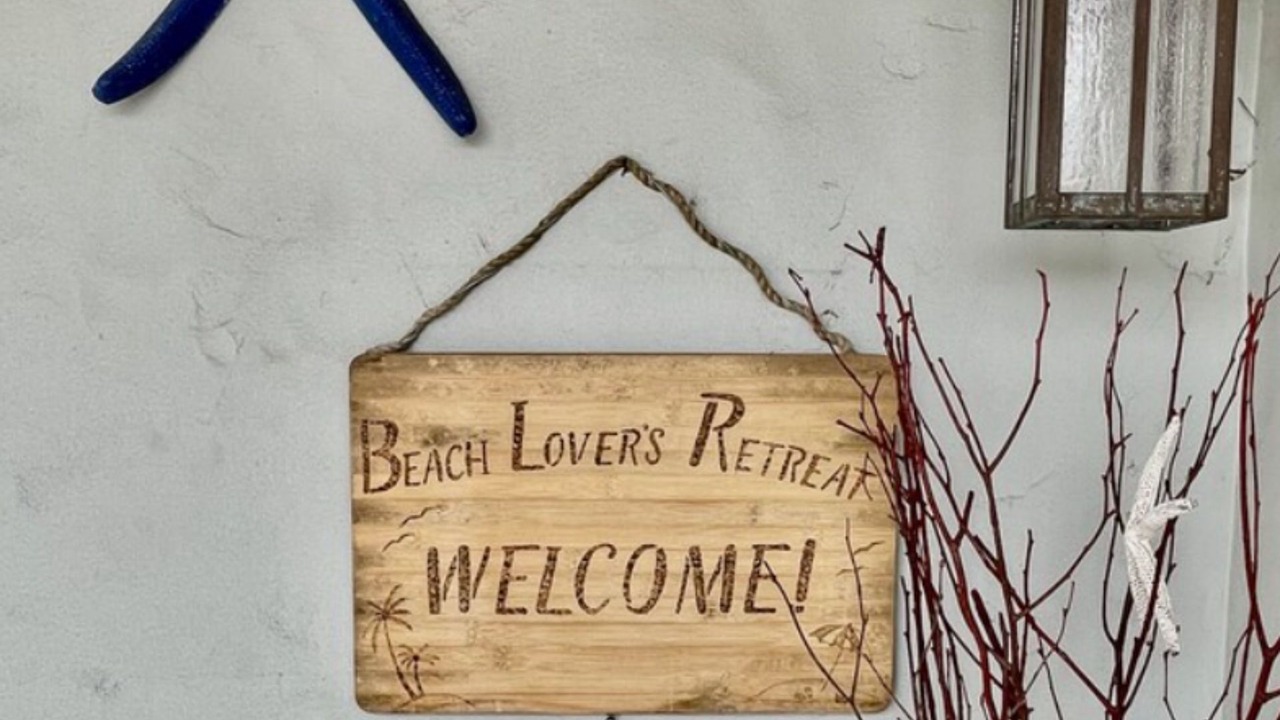 BEACH LOVER'S RETREAT
WELCOME!